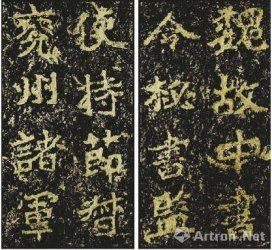 魏故中書
令秘書監
使持節督
兖州諸軍
Artron.Net